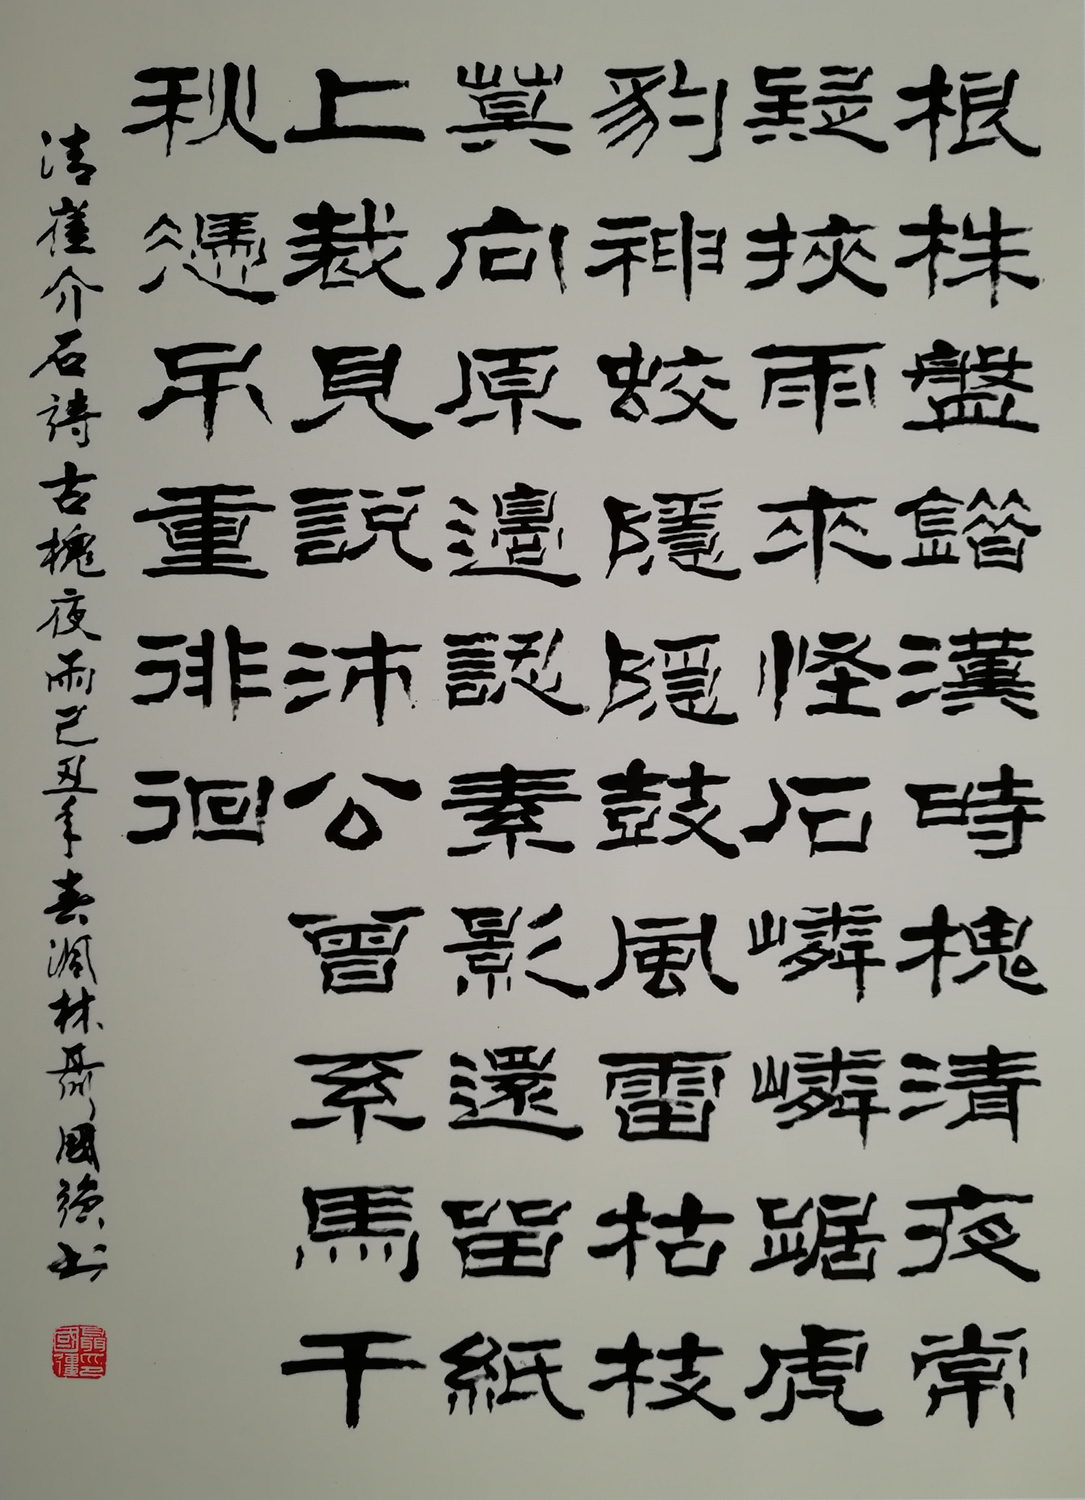 根株盤錯漢時槐清夜常
疑挾雨來怪石嶙嶙踞虎
豹神蛟隱隱鼓風雷枯枝
莫向原邊認素影還留紙
上裁見說沛公曾系馬千
秋憑吊重徘徊
清崔介石詩古槐夜雨己丑年春沨林聶國強书
聶國強印